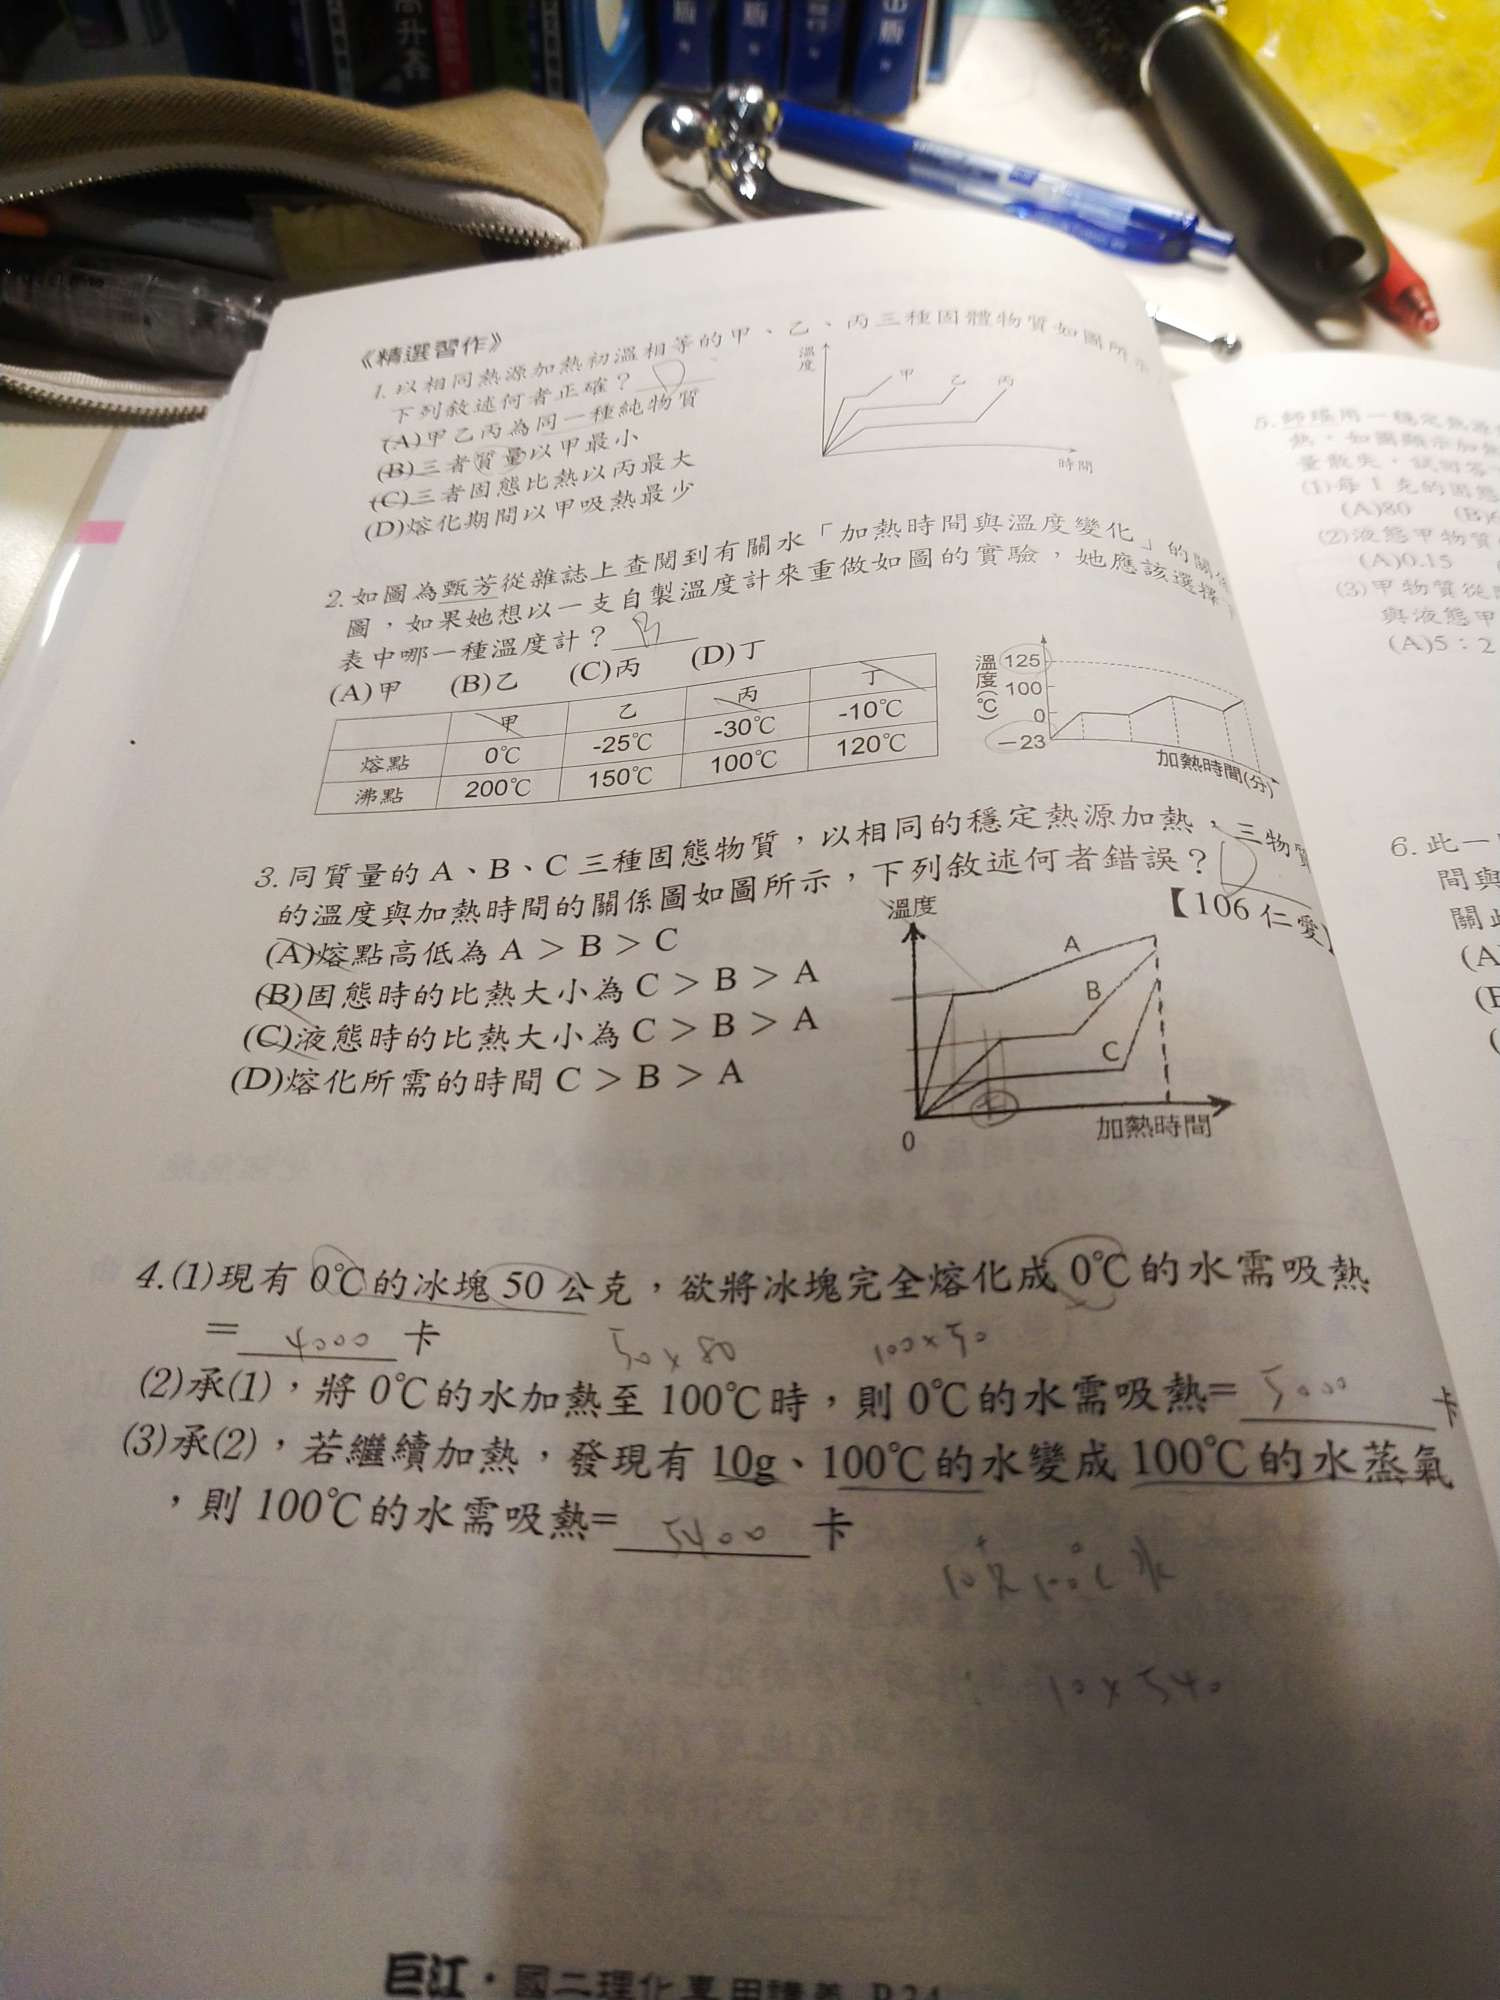 《精選習作》
1.以相同熱源加熱初溫相等的甲、乙、丙三種固體物質如圖所示
下列敘述何者正確? D
(A)甲乙丙為同一種純物質
(B)三者質量以甲最小
(C)三者固態比熱以丙最大
(D)熔化期間以甲吸熱最少
溫度
甲 乙 丙
時間
2.如圖為甄芳從雜誌上查閱到有關水「加熱時間與溫度變化」的關係
圖,如果她想以一支自製溫度計來重做如圖的實驗,她應該選擇
表中哪一種溫度計? B
(A)甲 (B)乙 (C)丙 (D)丁
甲 乙 丙 丁
熔點 0℃ -25℃ -30℃ -10℃
沸點 200℃ 150℃ 100℃ 120℃
溫度(℃)
125
100
0
-23
加熱時間(分)
3.同質量的 A、B、C 三種固態物質,以相同的穩定熱源加熱,三物質
的溫度與加熱時間的關係圖如圖所示,下列敘述何者錯誤? D
【106 仁愛】
(A)熔點高低為 A > B > C
(B)固態時的比熱大小為 C > B > A
(C)液態時的比熱大小為 C > B > A
(D)熔化所需的時間 C > B > A
溫度
A
B
C
0
加熱時間
4.(1)現有 0℃的冰塊 50 公克,欲將冰塊完全熔化成 0℃的水需吸熱
= 4000 卡
50×80
100×50
(2)承(1),將 0℃的水加熱至 100℃時,則 0℃的水需吸熱= 5000 卡
(3)承(2),若繼續加熱,發現有 10g、100℃的水變成 100℃的水蒸氣
,則 100℃的水需吸熱= 5400 卡
10×540
巨江・國二理化專用講義 P.24
5.師瑤用一穩定熱源
熱,如圖顯示加熱
量散失,試回答
(1)每 1 克的固態
(A)80
(2)液態甲物質
(A)0.15
(3)甲物質從
與液態甲
(A)5:2
6.此一
間與
關
(A